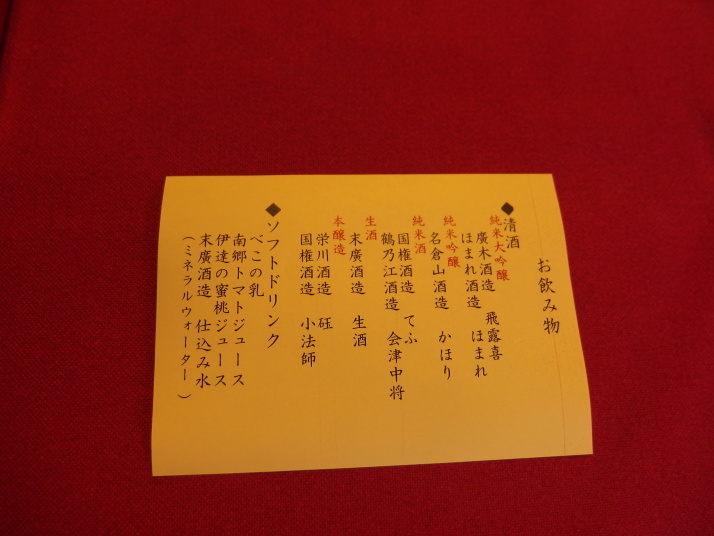 お飲み物
◆清酒
純米大吟醸
廣木酒造 飛露喜
ほまれ酒造 ほまれ
純米吟醸
名倉山酒造 かほり
純米酒
国権酒造 てふ
鶴乃江酒造 会津中将
生酒
末廣酒造 生酒
本醸造
栄川酒造 砡
国権酒造 小法師
◆ソフトドリンク
べこの乳
南郷トマトジュース
伊達の蜜桃ジュース
末廣酒造 仕込み水
(ミネラルウォーター)